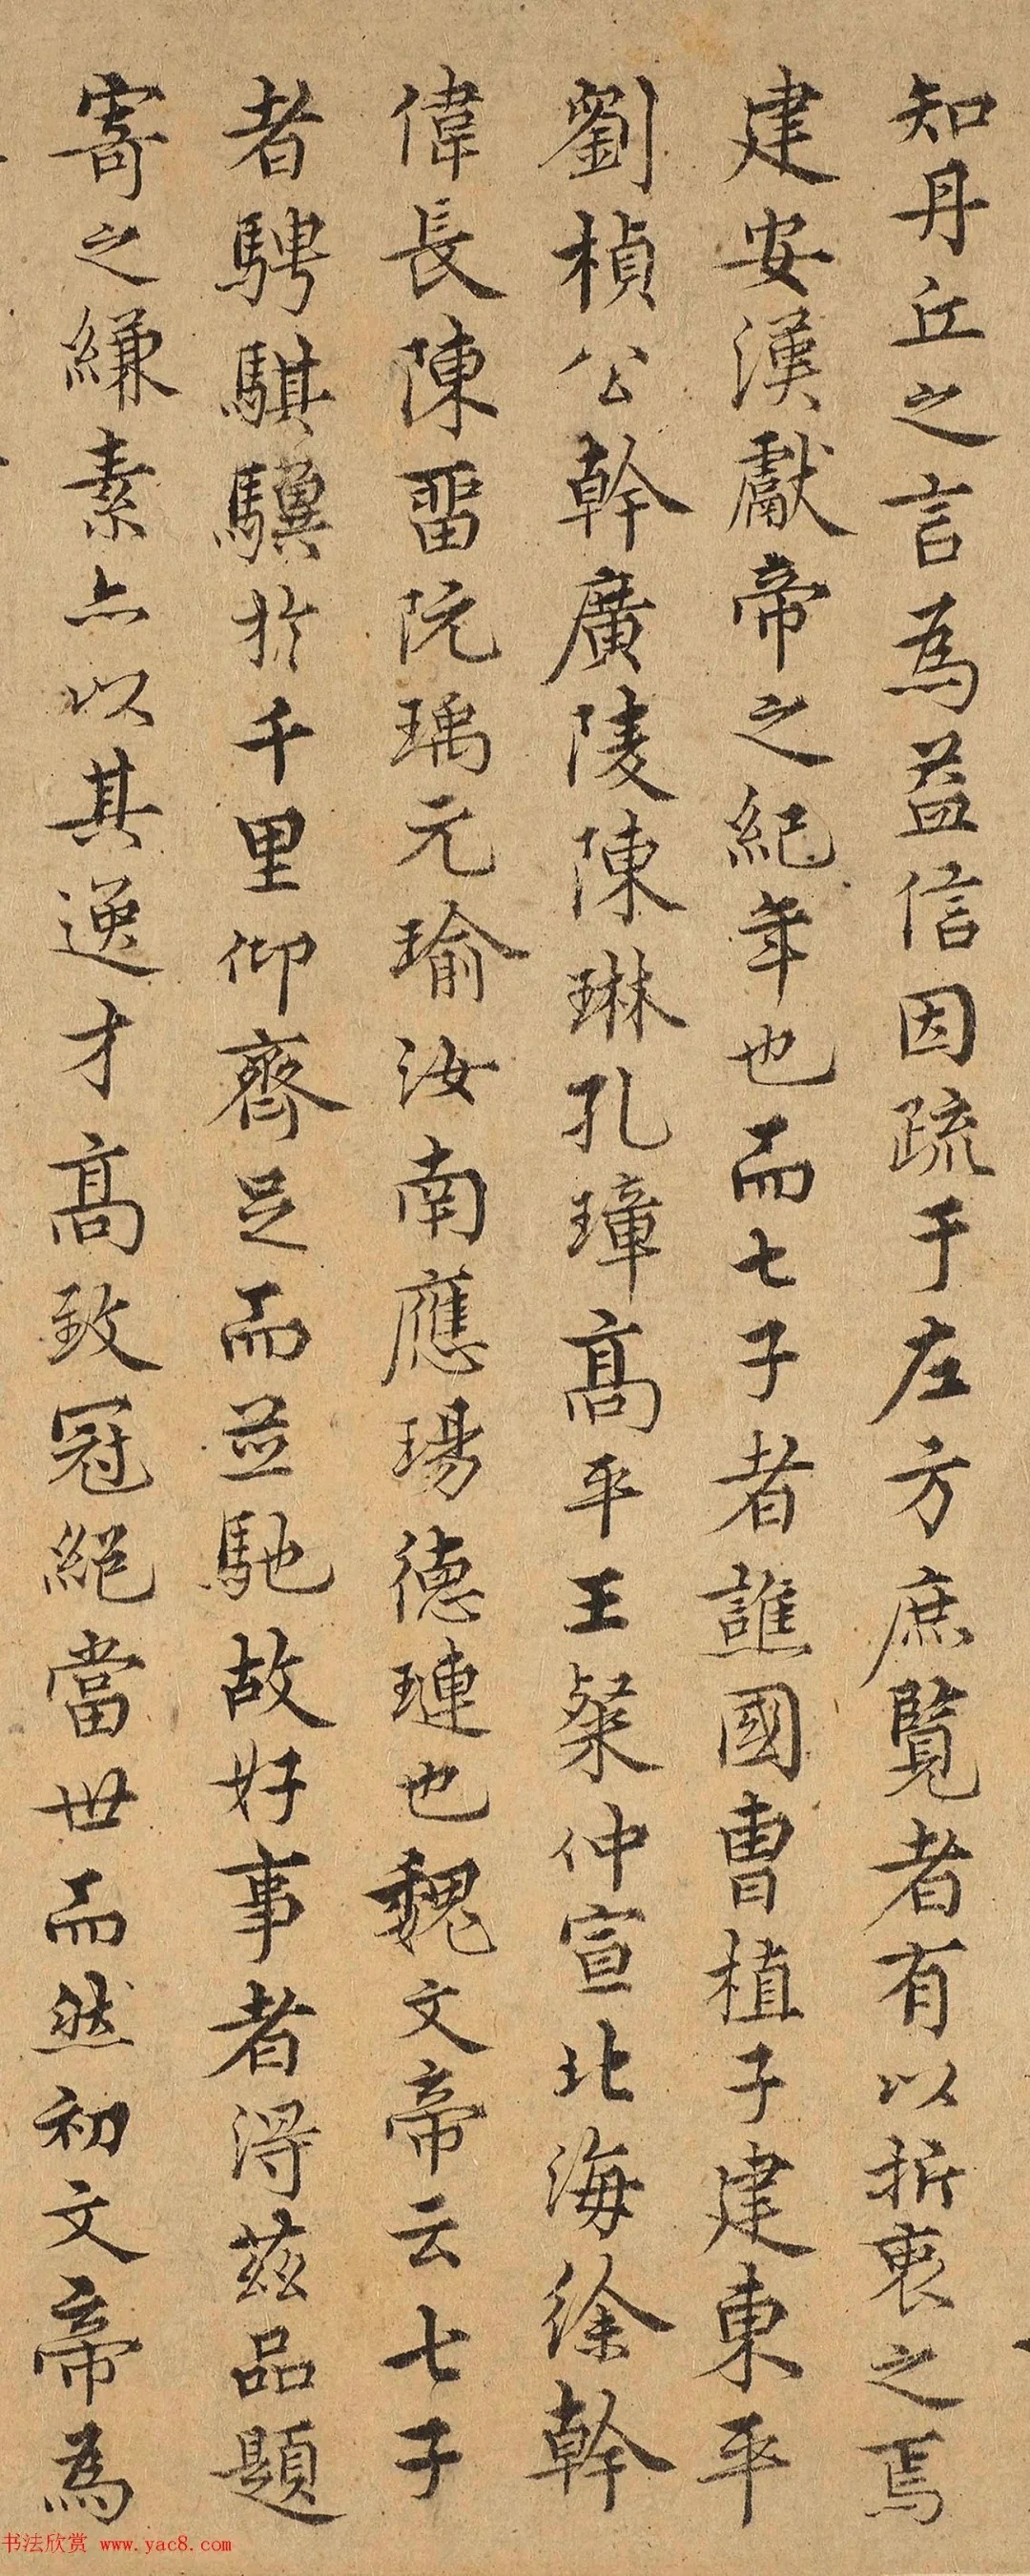 知丹丘之言為益信因疏于左方庶覽者有以折衷之焉
建安漢獻帝之紀年也而七子者譙國曹植子建東平
劉楨公幹廣陵陳琳孔璋高平王粲仲宣北海徐幹
偉長陳留阮瑀元瑜汝南應瑒德璉也魏文帝云七子
者騁騏驥於千里仰齊足而並馳故好事者得茲品題
寄之縑素亦以其逸才高致冠絕當世而然初文帝為
书法欣赏 www.yac8.com